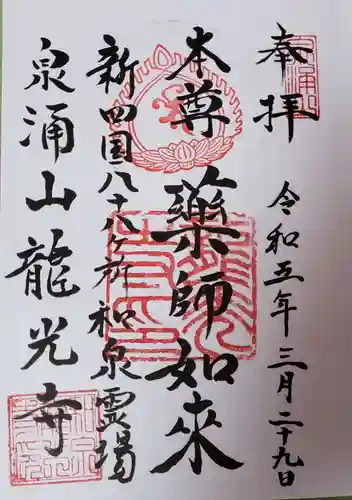 奉拝
令和五年三月二十九日
本尊 藥師如来
新四国八十八ヶ所和泉霊場
泉涌山龍光寺